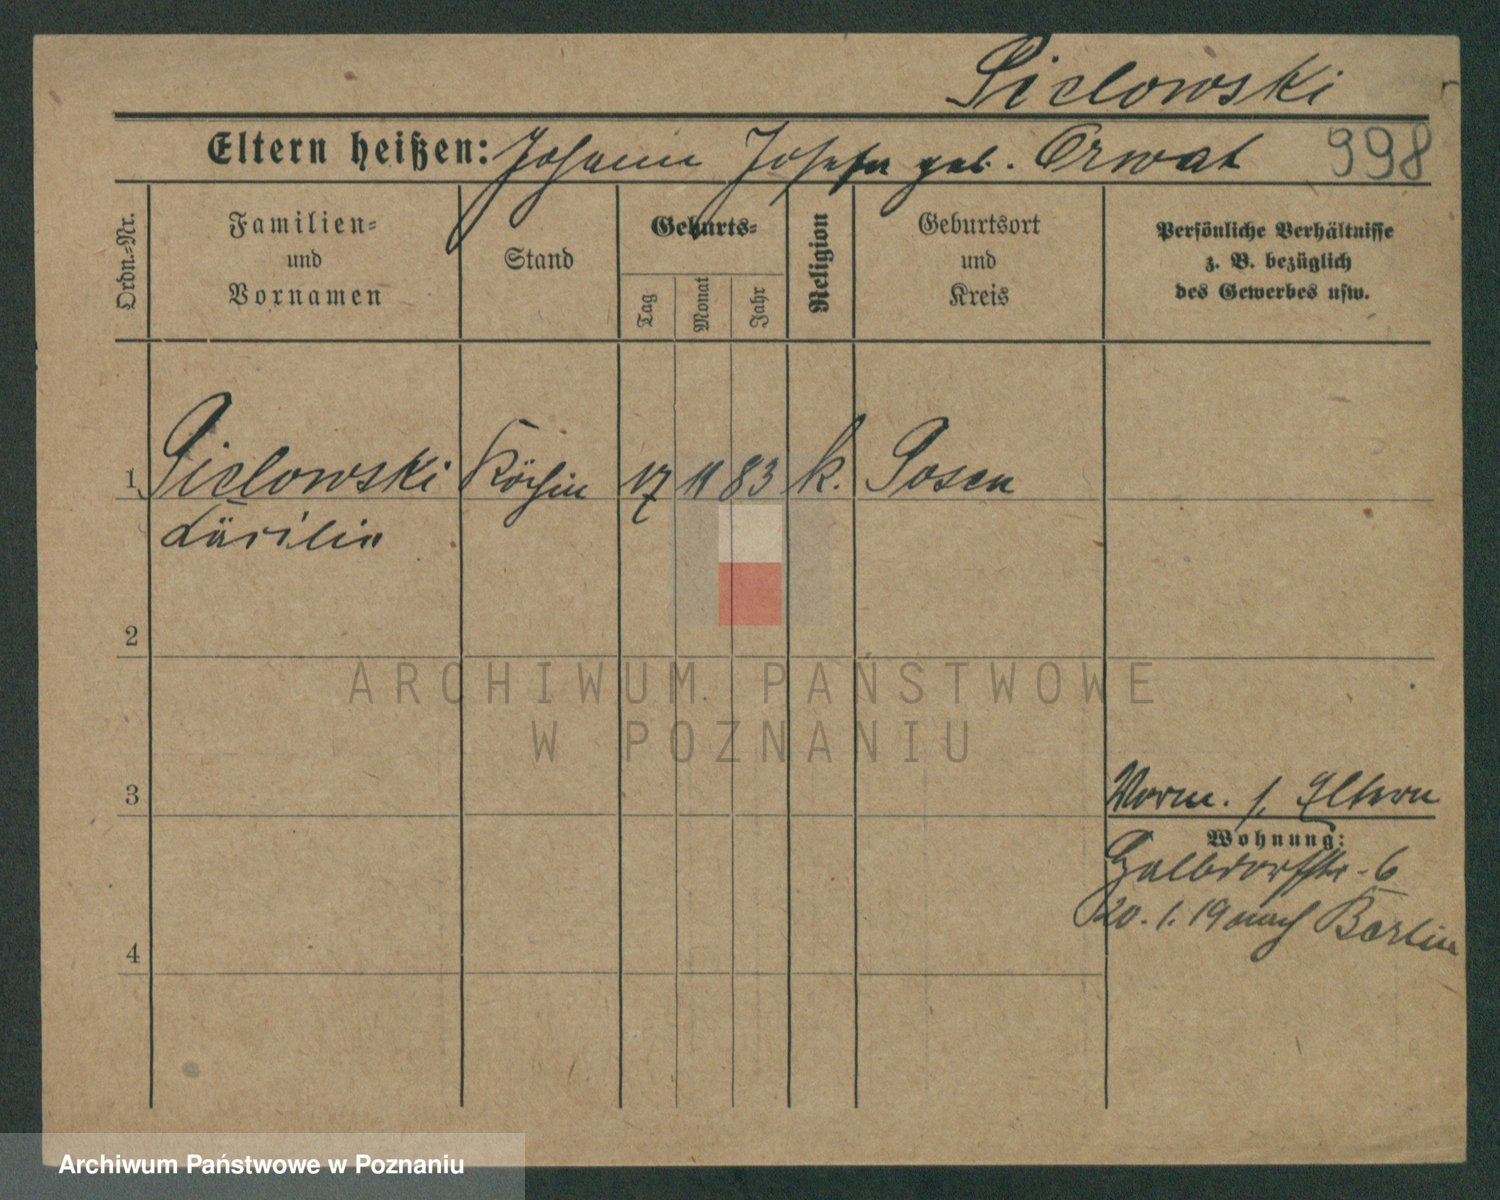 Piclowski
Eltern heißen: Johann Josefa geb. Orwat 998
Ordn.-Nr.
Familien-
und
Vornamen
Stand
Geburts-
Tag
Monat
Jahr
Religion
Geburtsort
und
Kreis
Persönliche Verhältnisse
z. B. bezüglich
des Gewerbes usw.
1 Piclowski Köchin 17 11 83 k. Posen
Cäcilie
2
3
Vorm. s. Eltern
Wohnung:
6
20. 1. 19 nach Berlin
4
ARCHIWUM PAŃSTWOWE
W POZNANIU
Archiwum Państwowe w Poznaniu